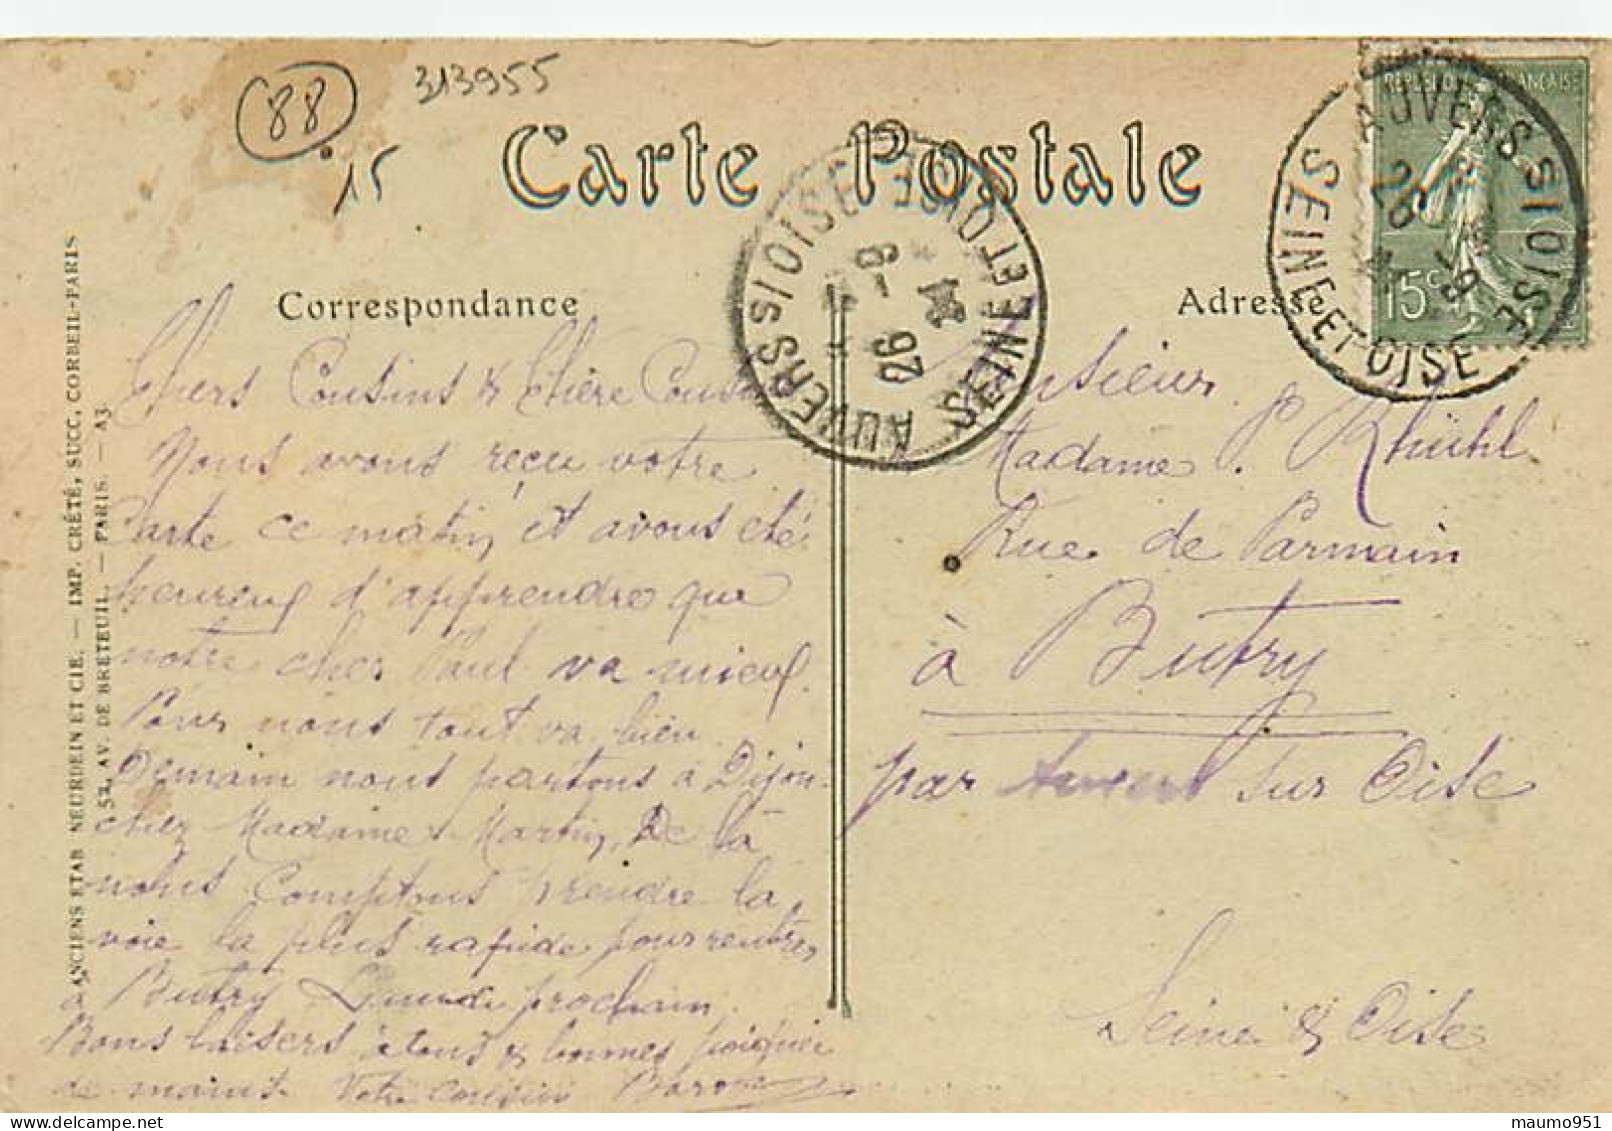 88
313955
15
Carte Postale
Correspondance
Adresse
RÉPUBLIQUE FRANÇAISE
15c
AUVERS S/OISE
SEINE ET OISE
26
AUVERS S/OISE
SEINE ET OISE
8
26
ANCIENS ETAB NEURDEIN ET CIE. — IMP. CRÉTÉ, SUCC. CORBEIL-PARIS
52, AV. DE BRETEUIL. — PARIS. — A3.
Chers Cousins & Chère
Nous avons reçu votre
Carte ce matin, et avons été
heureux d'apprendre que
notre cher Paul va mieux.
Pour nous tout va bien
Demain nous partons à Dijon
chez Madame Martin, De là
nous comptons prendre la
voie la plus rapide pour rentrer
à Butry prochain
Bons baisers à tous & bonnes poignées
de mains. Votre cousin
Madame P. Rhühl
Rue de Parmain
à Butry
par Auvers sur Oise
Seine & Oise
maumo951